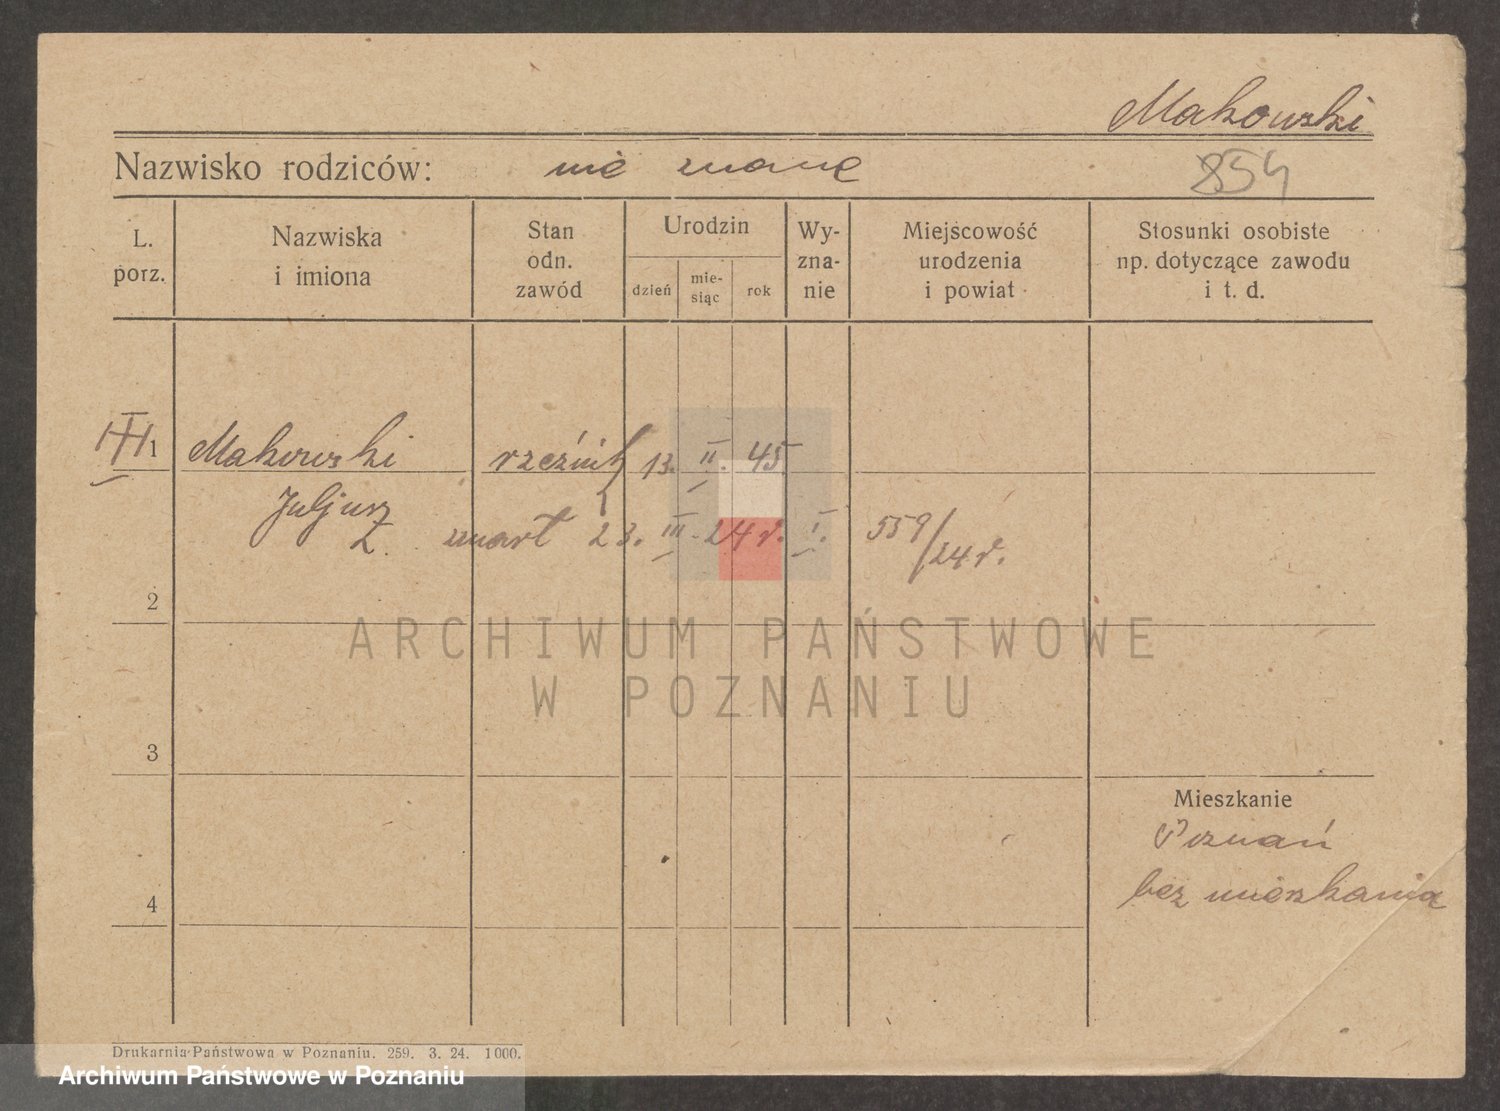 Makowski
Nazwisko rodziców: nie znane
854
L. porz.
Nazwiska i imiona
Stan odn. zawód
Urodzin
dzień
mie-
siąc
rok
Wy-
zna-
nie
Miejscowość urodzenia i powiat
Stosunki osobiste np. dotyczące zawodu i t. d.
1 Makowski rzeźnik 13. II. 45
Juljusz
Z. zmarł 23. III. 24 r. I. 559/24 r.
2
ARCHIWUM PAŃSTWOWE
W POZNANIU
3
Mieszkanie
Poznań
4
bez mieszkania
Drukarnia Państwowa w Poznaniu. 259. 3. 24. 1000.
Archiwum Państwowe w Poznaniu